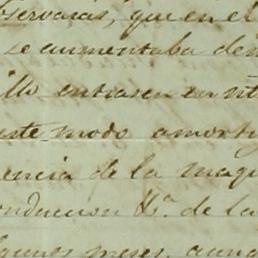 observaras, que en el
se aumentaba de
illo entrasen en
este modo amorti
encia de la maqu
onduccion &a. de la
lgunos meses, aunq